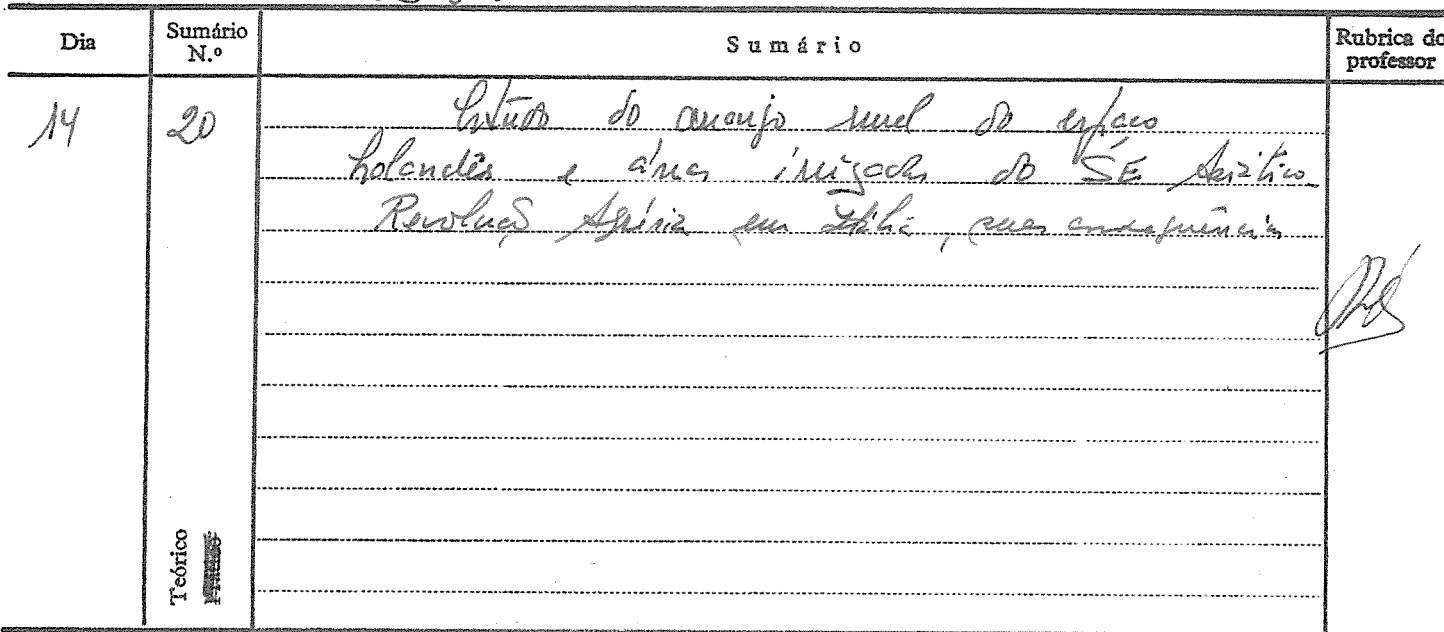 Dia
Sumário N.º
Sumário
Rubrica do professor
14
20
Estudo do arranjo rural do espaço
holandês e áreas irrigadas do SE Asiático
Revolução Agrária em Itália, suas consequências
Teórico